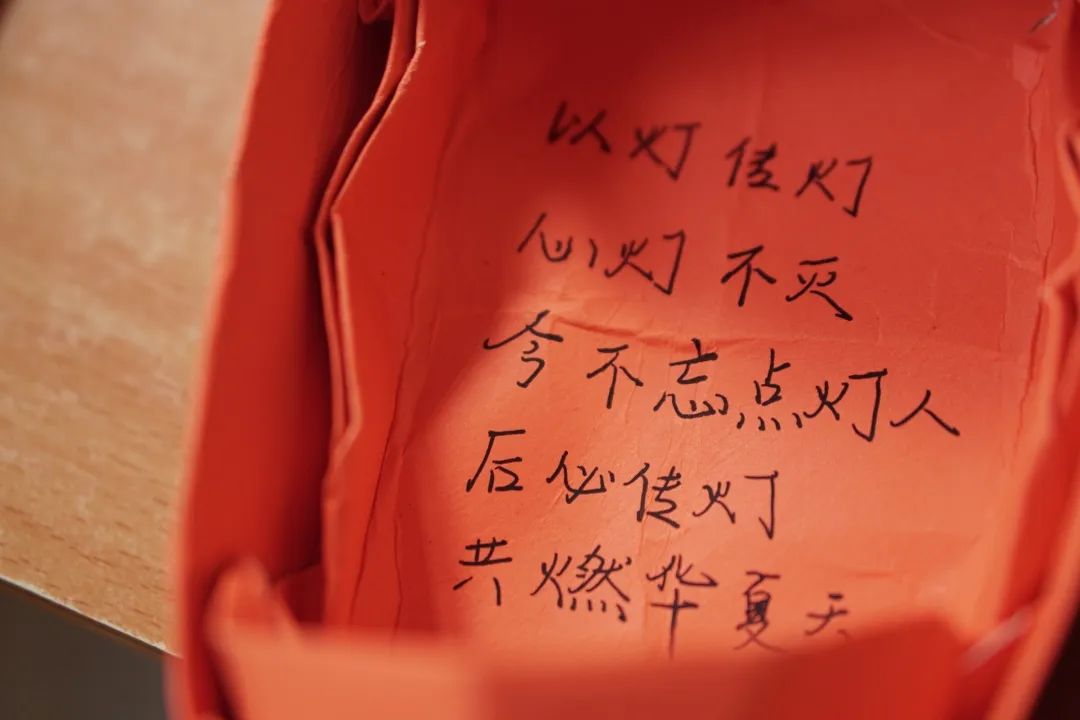 以灯传灯
心灯不灭
今不忘点灯人
后必传灯
共燃华夏天